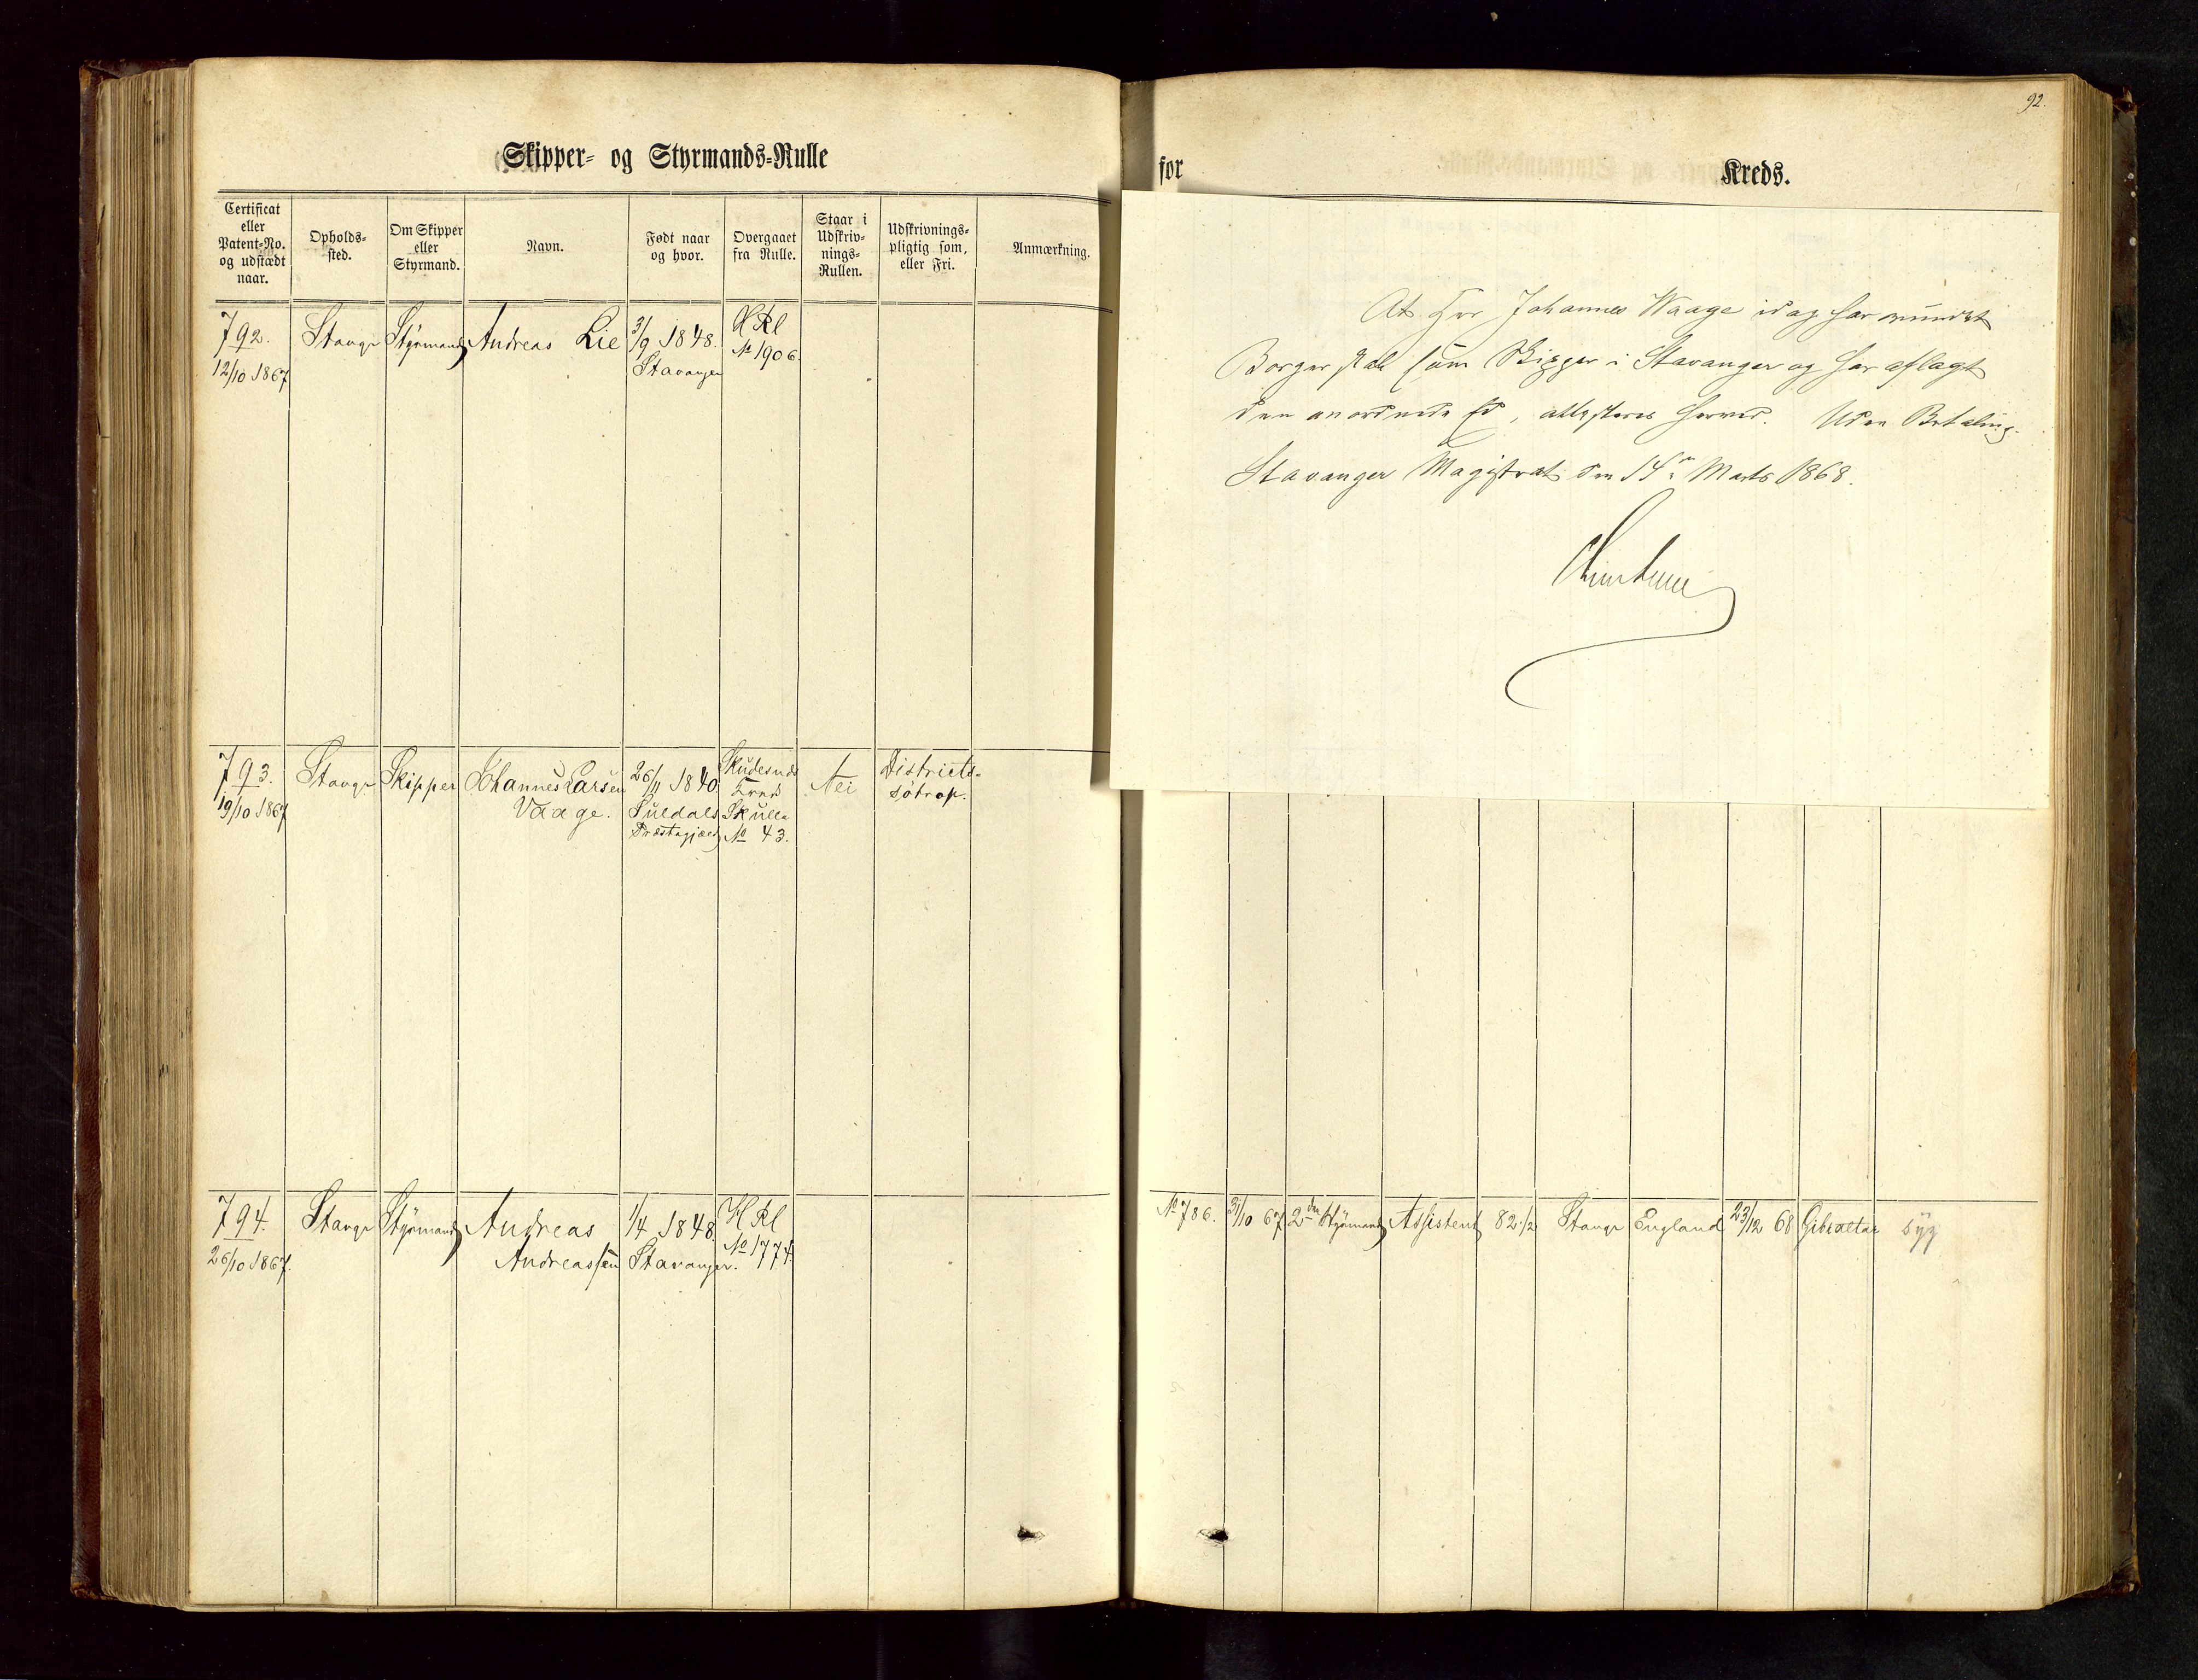 92.
Skipper- og Styrmands-Rulle
for Kreds.
Certificat eller Patent-No. og udstædt naar.
Opholds-sted.
Om Skipper eller Styrmand.
Navn.
Født naar og hvor.
Overgaaet fra Rulle.
Staar i Udskriv-nings-Rullen.
Udskrivnings-pligtig som, eller Fri.
Anmærkning.
792. Stavgr Styrmand Andreas Lie 3/9 1848. H Rl
12/10 1867 Stavanger No 1906.
At Hr Johannes Waage idag har vundet
Borgerskab som Skipper i Stavanger og har aflagt
den anordnede Ed, attesteres herved. Uden Betaling.
Stavanger Magistrat den 14de Marts 1868.
793. Stavgr Skipper Johannes Larsen 26/11 1840. Skudesnæs Nei Districts-
19/10 1867 Vaage. Suldals Kreds søtrop.
Præstegjæld SRulle
No 43.
794. Stavgr Styrmand Andreas 1/4 1848. H Rl
26/10 1867. Andreassen Stavanger. No 1774.
No 786. 31/10 67 2den Styrmand Assistent 82 1/2 Stavgr England 23/12 68 Gibraltar syg